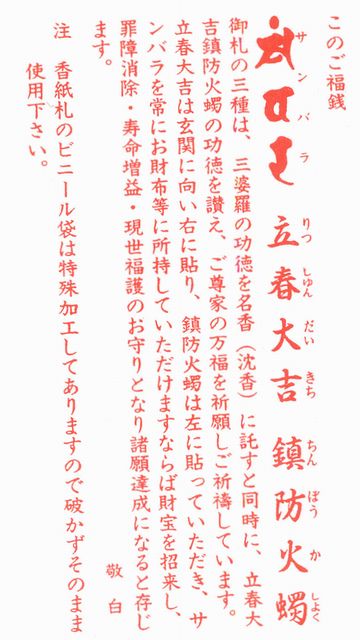 このご福銭
サンバラ
りつ しゆん だい きち ちん ぼう か しよく
立春大吉 鎮防火蠋
御札の三種は、三婆羅の功徳を名香（沈香）に託すと同時に、立春大
吉鎮防火蠋の功徳を讃え、ご尊家の万福を祈願しご祈禱しています。
立春大吉は玄関に向い右に貼り、鎮防火蠋は左に貼っていただき、サ
ンバラを常にお財布等に所持していただけますならば財宝を招来し、
罪障消除・寿命増益・現世福護のお守りとなり諸願達成になると存じ
ます。 敬白
注 香紙札のビニール袋は特殊加工してありますので破かずそのまま
使用下さい。